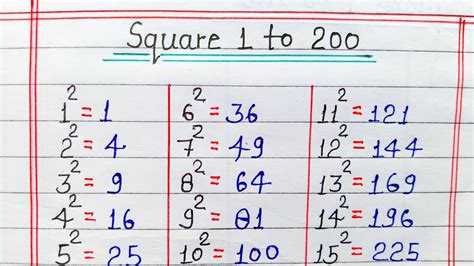 Square 1 to 200
1² = 1
2² = 4
3² = 9
4² = 16
5² = 25
6² = 36
7² = 49
8² = 64
9² = 81
10² = 100
11² = 121
12² = 144
13² = 169
14² = 196
15² = 225